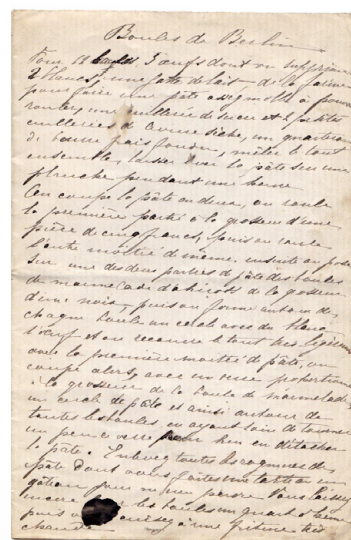 Boules de Berlin
Pour 18 boules 3 œufs dont on supprime
2 blancs, une tasse de lait, de la farine
pour faire une pâte assez molle à pouvoir
rouler, une cuillerée de sucre et 2 petites
cuillerées de levure sèche, un quarteron
de beurre frais fondu, mêler le tout
ensemble, laisser lever la pâte sur une
planche pendant une heure
On coupe la pâte en deux, on roule
la première partie à la grosseur d'une
pièce de cinq francs, puis on roule
l'autre moitié de même, ensuite on pose
sur une des deux parties de pâte des boules
de marmelade d'abricots de la grosseur
d'une noix, puis on forme autour de
chaque boule un cercle avec du blanc
d'œuf et on recouvre le tout très légèrement
avec la première moitié de pâte, on
coupe alors, avec un verre proportionné
à la grosseur de la boule de marmelade,
un cercle de pâte et ainsi autour de
toutes les boules en ayant soin de tourner
un peu ce verre pour bien en détacher
la pâte. Enlevez toutes les rognures de
pâte dont vous faites une tarte ou un
gâteau pour ne rien perdre. Vous laissez
encore les boules un quart d'heure
puis vous cuisez à une friture très
chaude